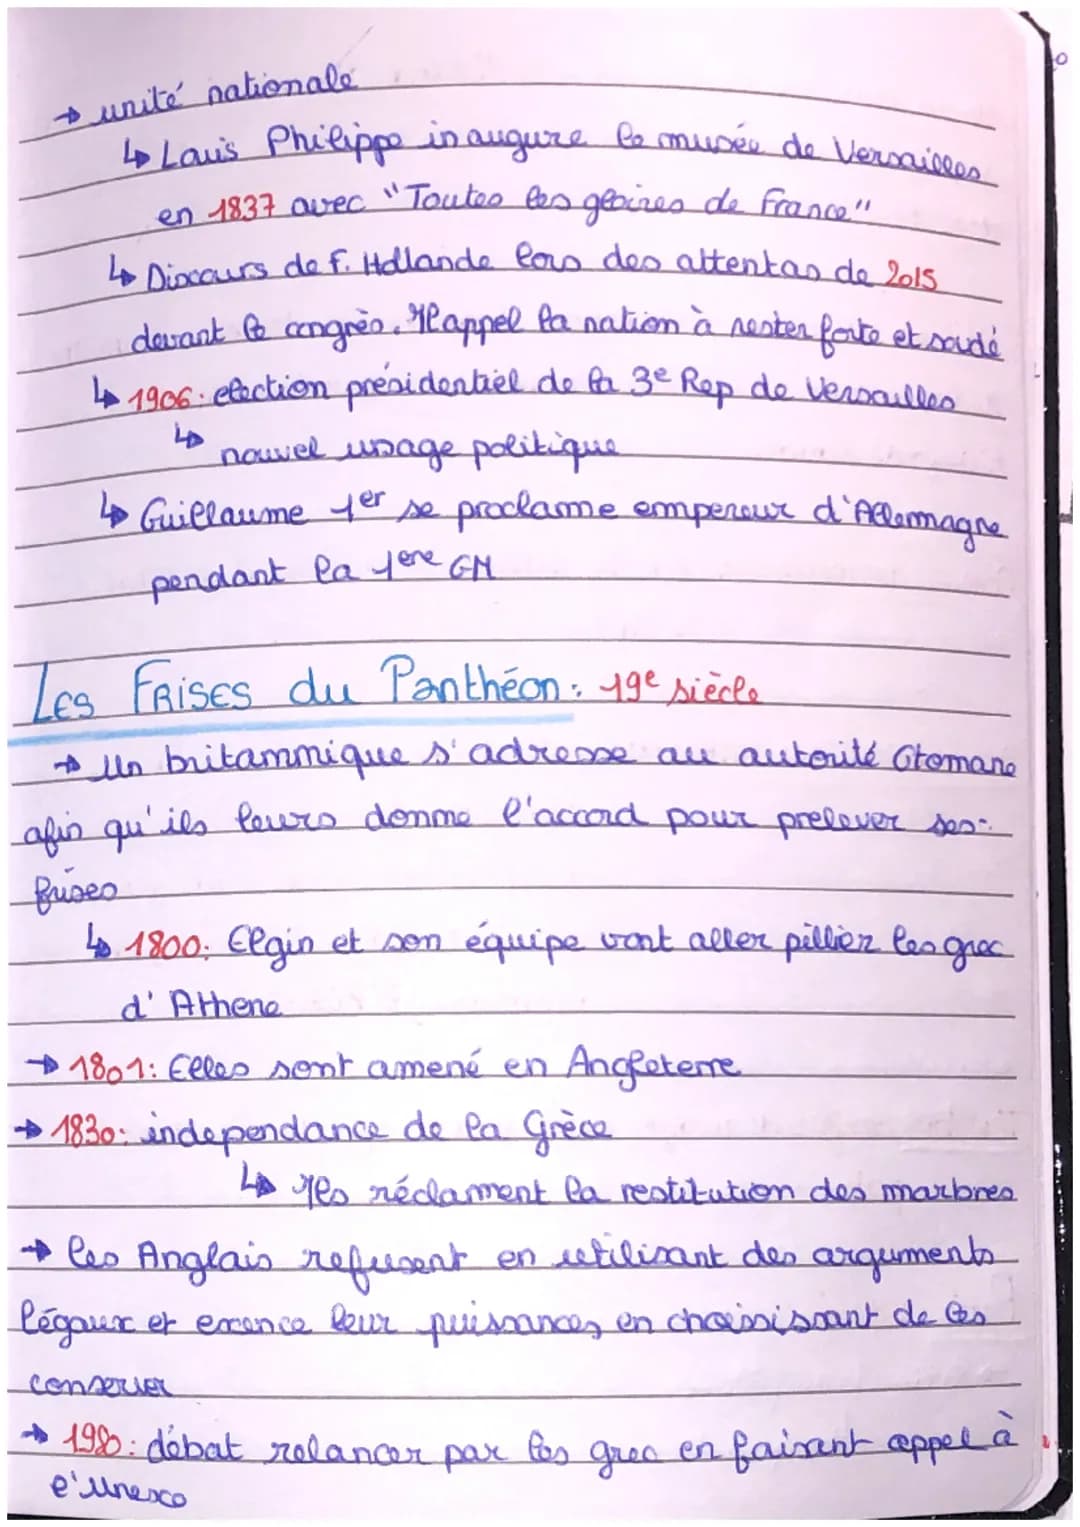 → unité nationale
↳ Louis Philippe inaugure le musée de Versailles
en 1837 avec "Toutes les gloires de France"
↳ Discours de F. Hollande lors des attentas de 2015
devant le congrès. Il appel la nation à rester forte et soudé
↳ 1906: election présidentiel de la 3e Rep de Versailles
↳ nouvel usage politique
↳ Guillaume 1er se proclame empereur d'Allemagne
pendant la 1ere GM
Les FRISES du Panthéon: 19e siècle
→ Un britannique s'adresse au autorité Otomane
afin qu'ils leurs donne l'accord pour prelever ses
frises
↳ 1800: Elgin et son équipe vont aller pillier les grec
d'Athene
→ 1801: Elles sont amené en Angleterre
→ 1830: independance de la Grèce
↳ Ils réclament la restitution des marbres
→ les Anglais refusent en utilisant des arguments
légaux et exence leur puissances en choisissant de les
conserver
→ 1980: débat relancer par les grec en faisant appel à
l'Unesco